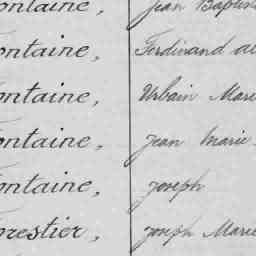 ontaine, Jean Baptis
ontaine, Ferdinand al
ontaine, Urbain Marie
ontaine, Jean Marie
ontaine, Joseph
orestier, Joseph Marie